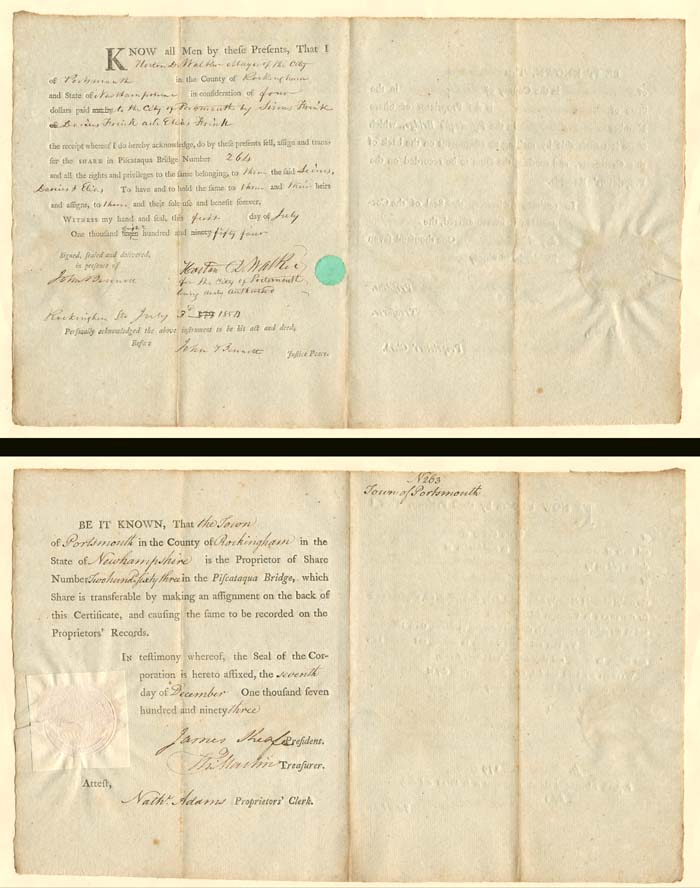 KNOW all Men by theſe Preſents, That I
Horton D. Walker Mayor of the City
of Portsmouth in the County of Rockingham
and State of New Hampshire in conſideration of four
dollars paid me by to the City of Portsmouth by Sirius Frink
& Darius Frink and Elias Frink
the receipt whereof I do hereby acknowledge, do by theſe preſents ſell, aſſign and tranſ-
fer the SHARE in Piſcataqua Bridge Number 264
and all the rights and privileges to the ſame belonging, to them the ſaid Sirius,
Darius & Elias, To have and to hold the ſame to them and their heirs
and aſſigns, to them and their ſole uſe and benefit forever.
WITNESS my hand and ſeal, this first day of July
One thouſand ſeven eight hundred and ninety fifty four
Signed, ſealed and delivered,
in preſence of
John Bennett
Horton D. Walker
for the City of Portsmouth
being duly authorized
Rockingham Ss July 3d 179 1854
Perſonally acknowledged the above inſtrument to be his act and deed,
Before
John Bennett Juſtice Peace.
No 263
Town of Portsmouth
BE IT KNOWN, That the Town
of Portsmouth in the County of Rockingham in the
State of Newhampshire is the Proprietor of Share
Number Two hund. sixty three in the Piſcataqua Bridge, which
Share is transferable by making an aſſignment on the back of
this Certificate, and cauſing the ſame to be recorded on the
Proprietors' Records.
IN teſtimony whereof, the Seal of the Cor-
poration is hereto affixed, the seventh
day of December One thouſand ſeven
hundred and ninety three
James Sheafe Preſident.
Th. Martin Treaſurer.
Atteſt,
Nathl. Adams Proprietors' Clerk.